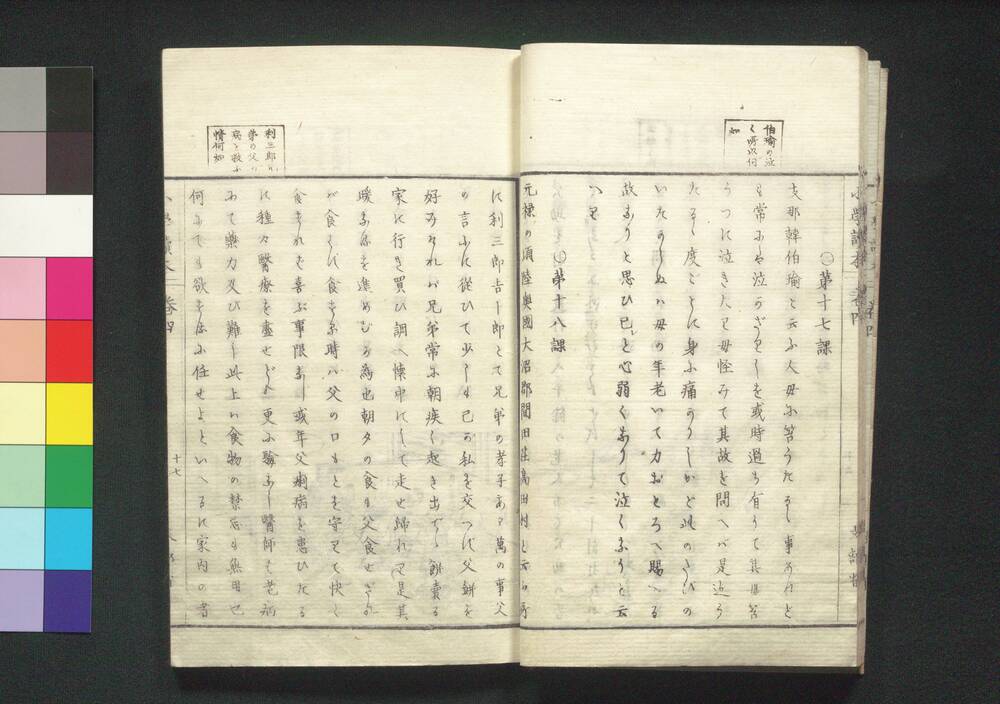 伯瑜の泣
く所以何
如
第十七課
支那韓伯瑜と云ふ人母に笞うたるゝ事あれと
も常にハ泣かざりしを或時過ち有りて其母笞
うつに泣きたり母怪みて其故を問へバ是迄う
たるゝ度ごとに身に痛かりしかど此のたびの
いたからぬハ母の年老いて力おとろへ賜へる
故なりと思ひ已と心弱くなりて泣くなりと云
へり
第十八課
元禄の頃陸奥國大沼郡
高田村と云ふ所
利三郎
弟の父の
病を救ふ
情何如
に利三郎吉十郎とて兄弟の孝子あり萬の事父
の言ふに從ひて少しも己が私を交へず父餅を
好みければ兄弟常に朝疾く起き出で餅賣る
家に行き買ひ調へ懐中にして走せ歸れり是其
暖なるを進めむ為也朝夕の食も父食せざれ
バ食せず食する時ハ父の口もとを守りて快く
食すれば喜ぶ事限なし或年父痢病を患ひたる
に種々醫療を盡せども更に驗なし醫師も老病
にて藥力及び難し此上ハ食物の禁忌も無用也
何にても欲するに任せよといへるに家内の者
十七